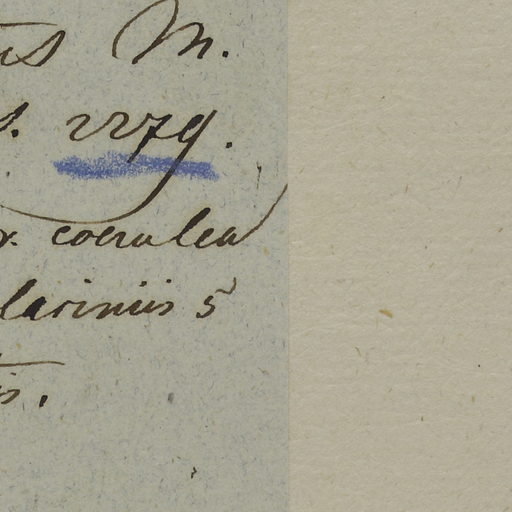 us M.
s. 2279.
r. coerulea
laciniis 5
is.